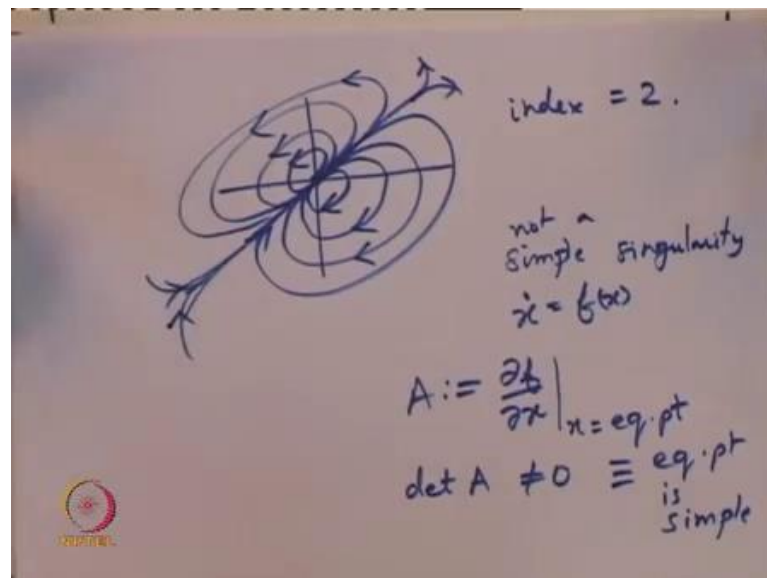 index = 2.
not a
simple singularity
ẋ = f(x)
A := ∂f/∂x |x = eq.pt
det A ≠ 0 ≡ eq.pt
is
simple
NPTEL